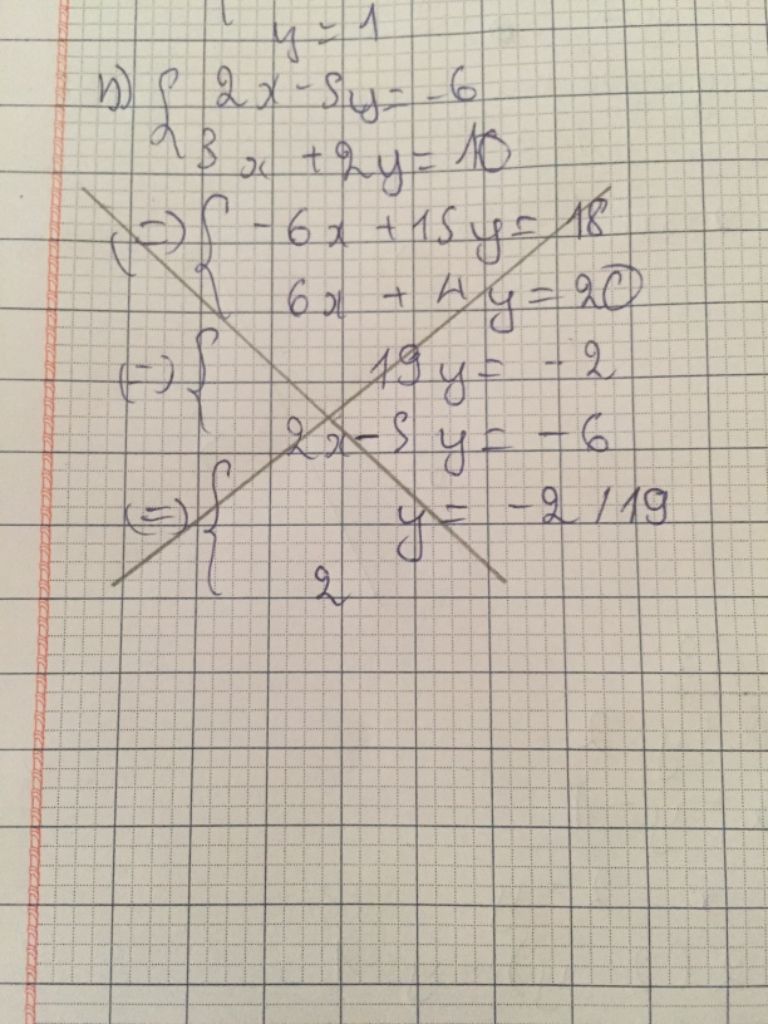 y = 1
b) { 2x - 5y = -6
3x + 2y = 10
(=) { -6x + 15y = 18
6x + 4y = 20
(=) { 19y = -2
2x - 5y = -6
(=) { y = -2/19
2